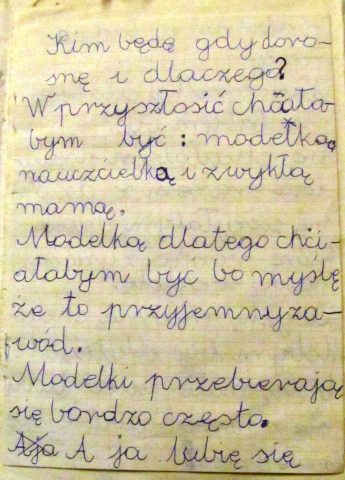 Kim będę gdy doro-
snę i dlaczego?
W przyszłosić chciała
bym być: modelką,
nauczcielką i zwykłą
mamą.
Modelką dlatego chci-
ałabym być bo myślę
że to przyjemny za-
wód.
Modelki przebierają
się bardzo często.
A ja lubię się